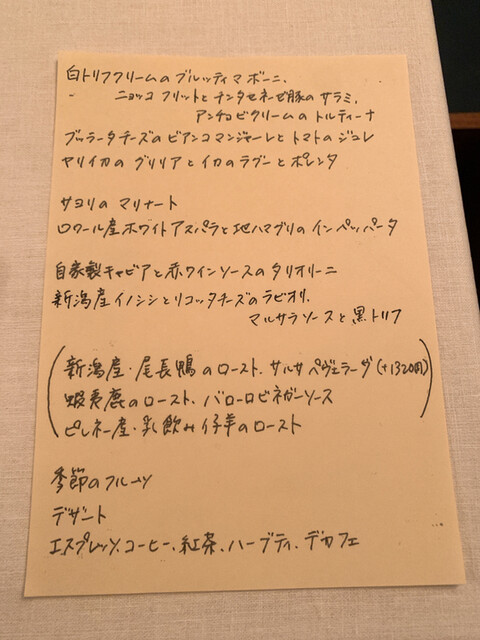 白トリフクリームのブルッティマボーニ、
ニョッコフリットとチンタセネーゼ豚のサラミ、
アンチョビクリームのトルティーナ
ブッラータチーズのビアンコマンジャーレとトマトのジュレ
ヤリイカのグリリアとイカのラグーとポレンタ
サヨリのマリナート
ロワール産ホワイトアスパラと地ハマグリのインペッパータ
自家製キャビアと赤ワインソースのタリオリーニ
新潟産イノシシとリコッタチーズのラビオリ、
マルサラソースと黒トリフ
新潟産・尾長鴨のロースト、サルサペヴェラーダ(+1320円)
蝦夷鹿のロースト、バローロビネガーソース
ピレネー産・乳飲み仔羊のロースト
季節のフルーツ
デザート
エスプレッソ、コーヒー、紅茶、ハーブティ、デカフェ